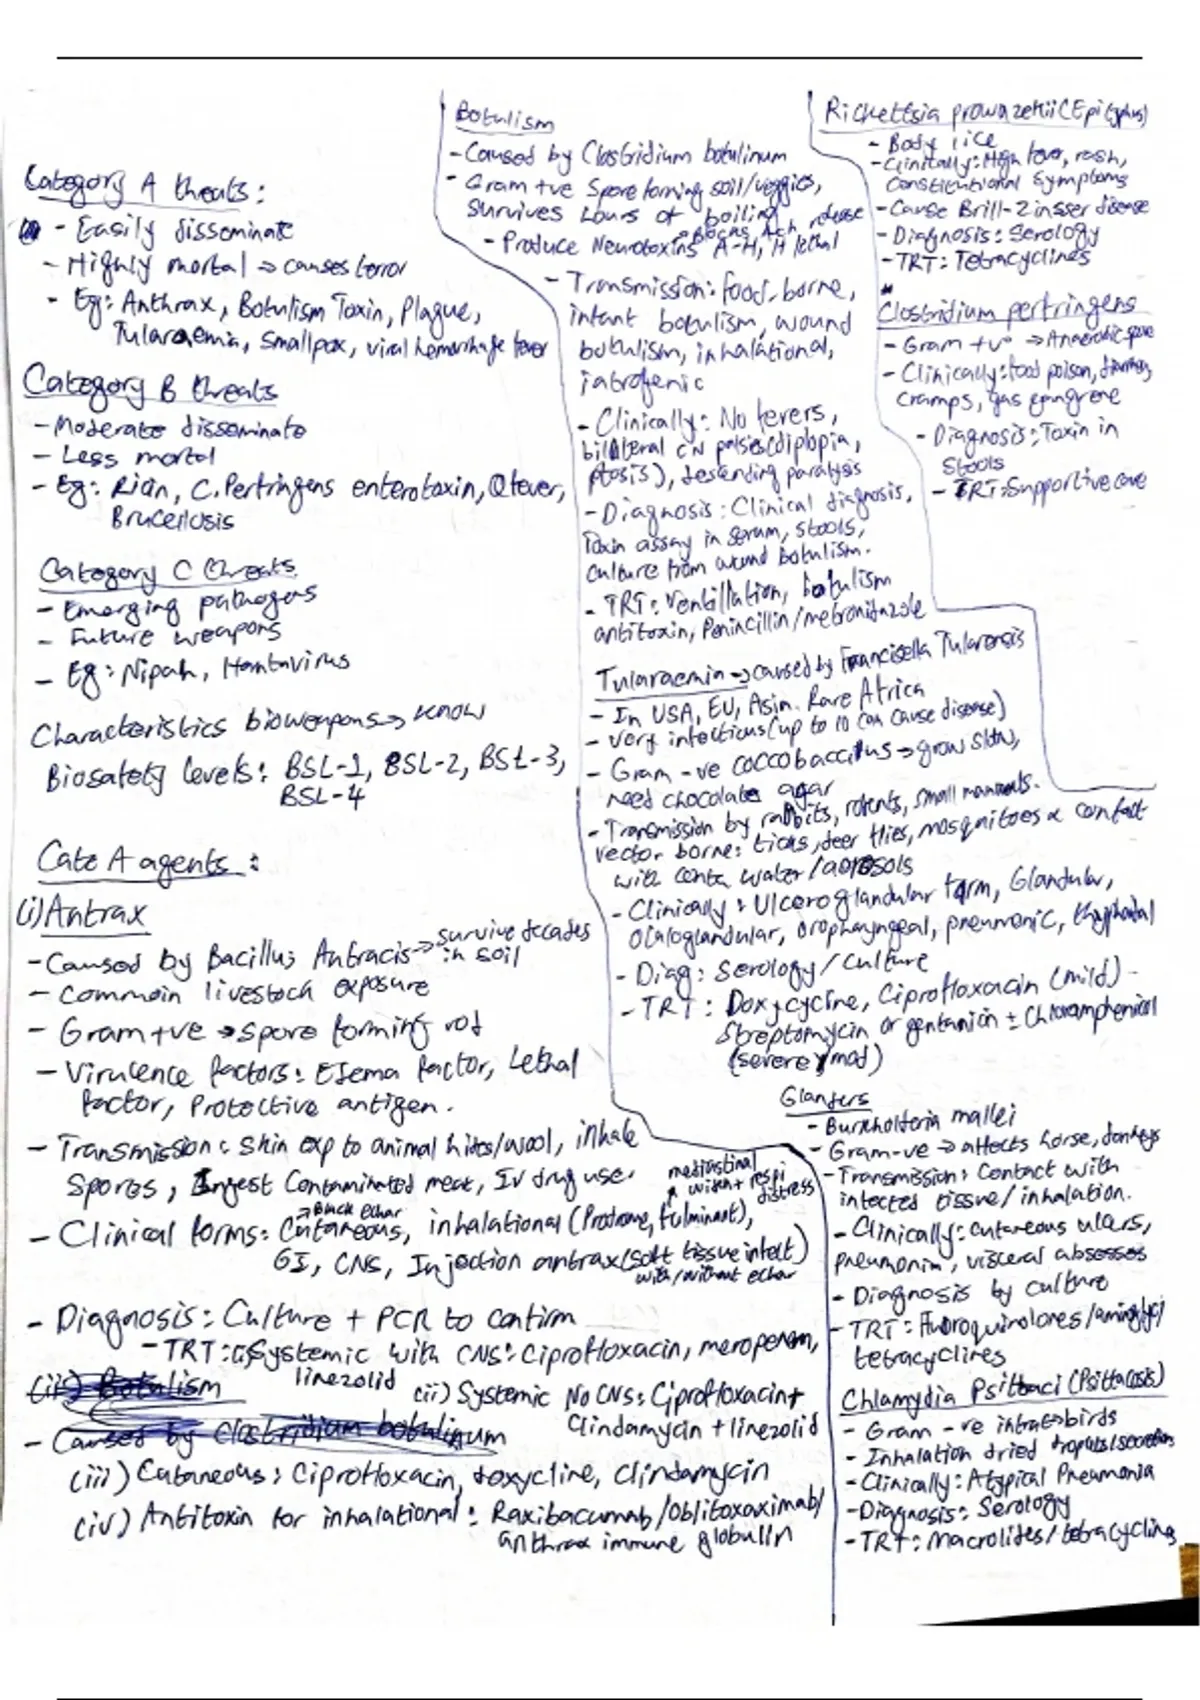 Category A threats:
- Easily disseminate
- Highly mortal → causes terror
- Eg: Anthrax, Botulism Toxin, Plague,
Tularaemia, Smallpox, viral hemorrhagic fever
Category B threats
- Moderate disseminate
- Less mortal
- Eg: Ricin, C. Perfringens enterotoxin, Q fever,
Brucellosis
Category C threats
- Emerging pathogens
- Future weapons
- Eg: Nipah, Hantavirus
Characteristics bioweapons → know
Biosafety levels: BSL-1, BSL-2, BSL-3,
BSL-4
Cate A agents:
(i) Antrax
- Caused by Bacillus Antracis → survive decades
in soil
- Common livestock exposure
- Gram +ve → spore forming rod
- Virulence factors: Edema factor, Lethal
factor, Protective antigen.
- Transmission: Skin exp to animal hides/wool, inhale
Spores, Ingest Contaminated meat, IV drug use.
→ Black echar
mediastinal
widen + respi
distress
- Clinical forms: Cutaneous, inhalational (Prodrome, fulminant),
GI, CNS, Injection antrax (soft tissue infect)
with/without echar
- Diagnosis: Culture + PCR to confirm
- TRT: (i) Systemic with CNS: Ciprofloxacin, meropenem,
linezolid
(ii) Systemic No CNS: Ciprofloxacin +
Clindamycin + linezolid
(ii) Botulism
- Caused by Clostridium botulinum
(iii) Cutaneous: Ciprofloxacin, doxycline, Clindamycin
(iv) Antitoxin for inhalational: Raxibacumab/Obiltoxaximab/
anthrax immune globulin
Botulism
- Caused by Clostridium botulinum
- Gram +ve Spore forming soil/veggies,
Survives hours of boiling
→ Blocks Ach release
- Produce Neurotoxins A-H, H lethal
- Transmission: food-borne,
infant botulism, wound
botulism, inhalational,
iatrogenic
- Clinically: No fevers,
bilateral CN palsies (diplopia,
ptosis), descending paralysis
- Diagnosis: Clinical diagnosis,
Toxin assay in serum, stools,
culture from wound botulism.
- TRT: Ventillation, botulism
antitoxin, Penincillin/metronidazole
Tularaemia → caused by Francisella Tularensis
- In USA, EU, Asia. Rare Africa
- very infectious (up to 10 can cause disease)
- Gram -ve coccobaccillus → grow slow,
need chocolate agar
- Transmission by rabbits, rodents, small mammals.
vector borne: ticks, deer flies, mosquitoes & contact
with conta water/aerosols
- Clinically: Ulceroglandular form, Glandular,
Oculoglandular, oropharyngeal, pneumonic, thyphoidal
- Diag: Serology/culture
- TRT: Doxycycline, Ciprofloxacin (mild) -
Streptomycin or gentamicin ± Chloramphenicol
(severe/mod)
Rickettsia prowazekii (Epi typhus)
- Body lice
- Clinically: High fever, rash,
Constitutional Symptoms
- Cause Brill-Zinsser disease
- Diagnosis: Serology
- TRT: Tetracyclines
Clostridium perfringens
- Gram +ve → Anaerobic spore
- Clinically: food poison, diarrhea,
cramps, gas gangrene
- Diagnosis: Toxin in
Stools
- TRT: Supportive care
Glanders
- Burkholderia mallei
- Gram -ve → affects horse, donkeys
- Transmission: Contact with
infected tissue/inhalation.
- Clinically: cutaneous ulcers,
pneumonia, visceral absesses
- Diagnosis by culture
- TRT: Fluoroquinolones/aminoglyci/
tetracyclines
Chlamydia Psittaci (Psittacosis)
- Gram -ve birds
- Inhalation dried droplets/secretions
- Clinically: Atypical Pneumonia
- Diagnosis: Serology
- TRT: Macrolides/tetracyclines